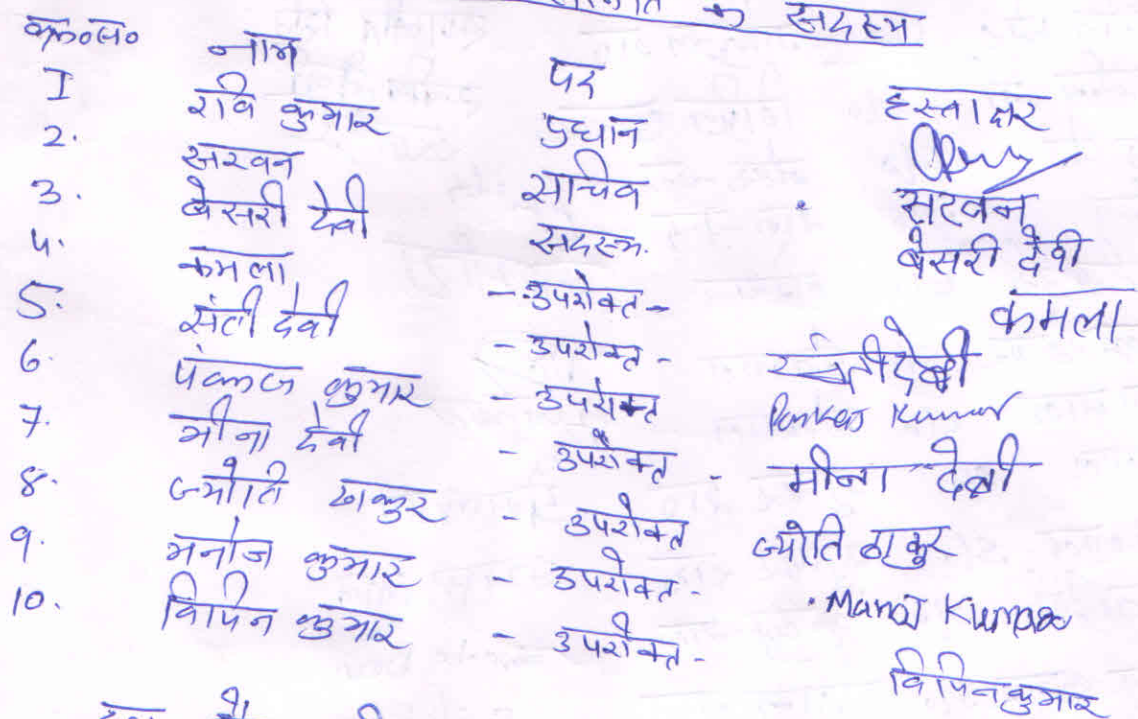 सदस्य
क्र०सं० नाम पद हस्ताक्षर
1 रवि कुमार प्रधान
2. सरवन सचिव सरवन
3. बेसरी देवी सदस्य. बेसरी देवी
4. कमला - उपरोक्त - कमला
5. संती देवी - उपरोक्त -
6. पंकज कुमार - उपरोक्त Pankaj Kumar
7. मीना देवी - उपरोक्त - मीना देवी
8. ज्योति ठाकुर - उपरोक्त ज्योति ठाकुर
9. मनोज कुमार - उपरोक्त - Manoj Kumar
10. विपिन कुमार - उपरोक्त - विपिन कुमार